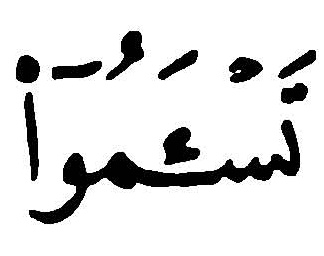 تَسْـَٔمُوٓا۟